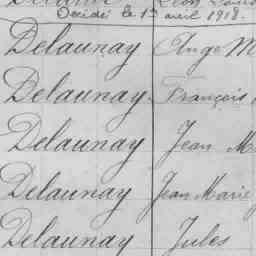 Décédé le 1 avril 1918.
Delaunay Ange M
Delaunay François
Delaunay Jean M
Delaunay Jean Marie
Delaunay Jules